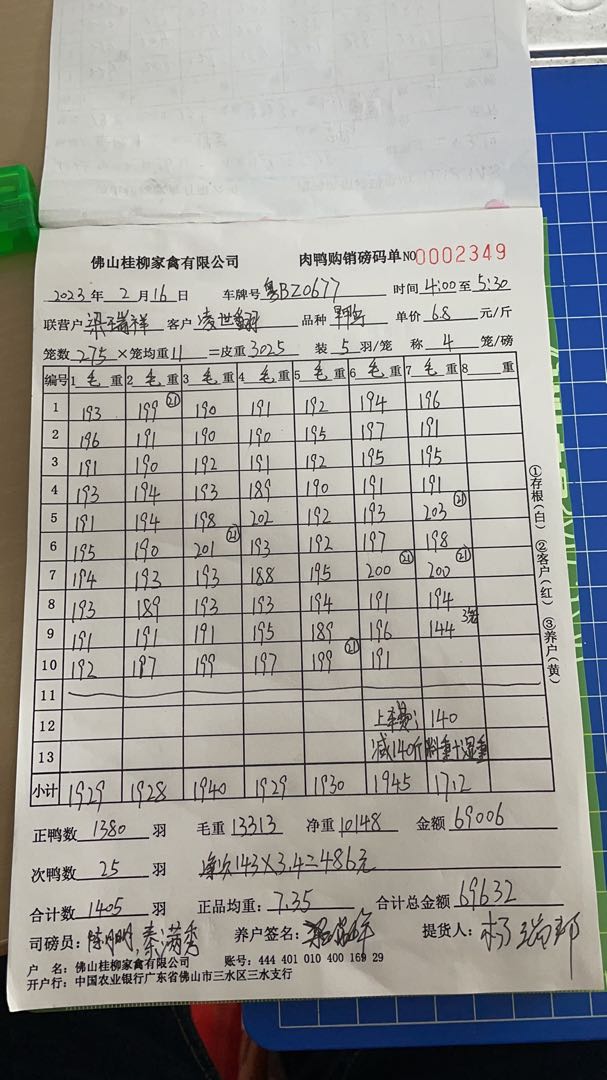 佛山桂柳家禽有限公司 肉鸭购销磅码单 NO 0002349
2023年 2月 16日 车牌号 粤BZ0677 时间 4:00 至 5:30
联营户 梁瑞祥 客户 凌世 品种 单价 6.8 元/斤
笼数 275 ×笼均重 11 =皮重 3025 装 5 羽/笼 称 4 笼/磅
编号 1 毛重 2 毛重 3 毛重 4 毛重 5 毛重 6 毛重 7 毛重 8 重
1 193 199 ㉑ 190 191 192 194 196
2 196 191 190 190 195 197 191
3 191 190 192 191 192 195 195
4 193 194 193 189 190 191 191
5 191 194 198 202 192 193 203 ㉑
6 195 190 201 ㉑ 193 192 197 198
7 194 193 193 188 195 200 ㉑ 200 ㉑
8 193 189 193 193 194 191 194
9 191 191 191 195 189 196 144 3笼
10 192 197 199 197 199 ㉑ 191
11
12 上车费: 140
13 减140斤料重+湿重
小计 1929 1928 1940 1929 1930 1945 1712
正鸭数 1380 羽 毛重 13313 净重 10148 金额 69006
次鸭数 25 羽 次143×3.4=486元
合计数 1405 羽 正品均重: 7.35 合计总金额 69632
司磅员: 陈明明, 秦满秀 养户签名: 提货人: 杨瑞邦
户 名: 佛山桂柳家禽有限公司 账号: 444 401 010 400 169 29
开户行: 中国农业银行广东省佛山市三水区三水支行
①存根(白) ②客户(红) ③养户(黄)